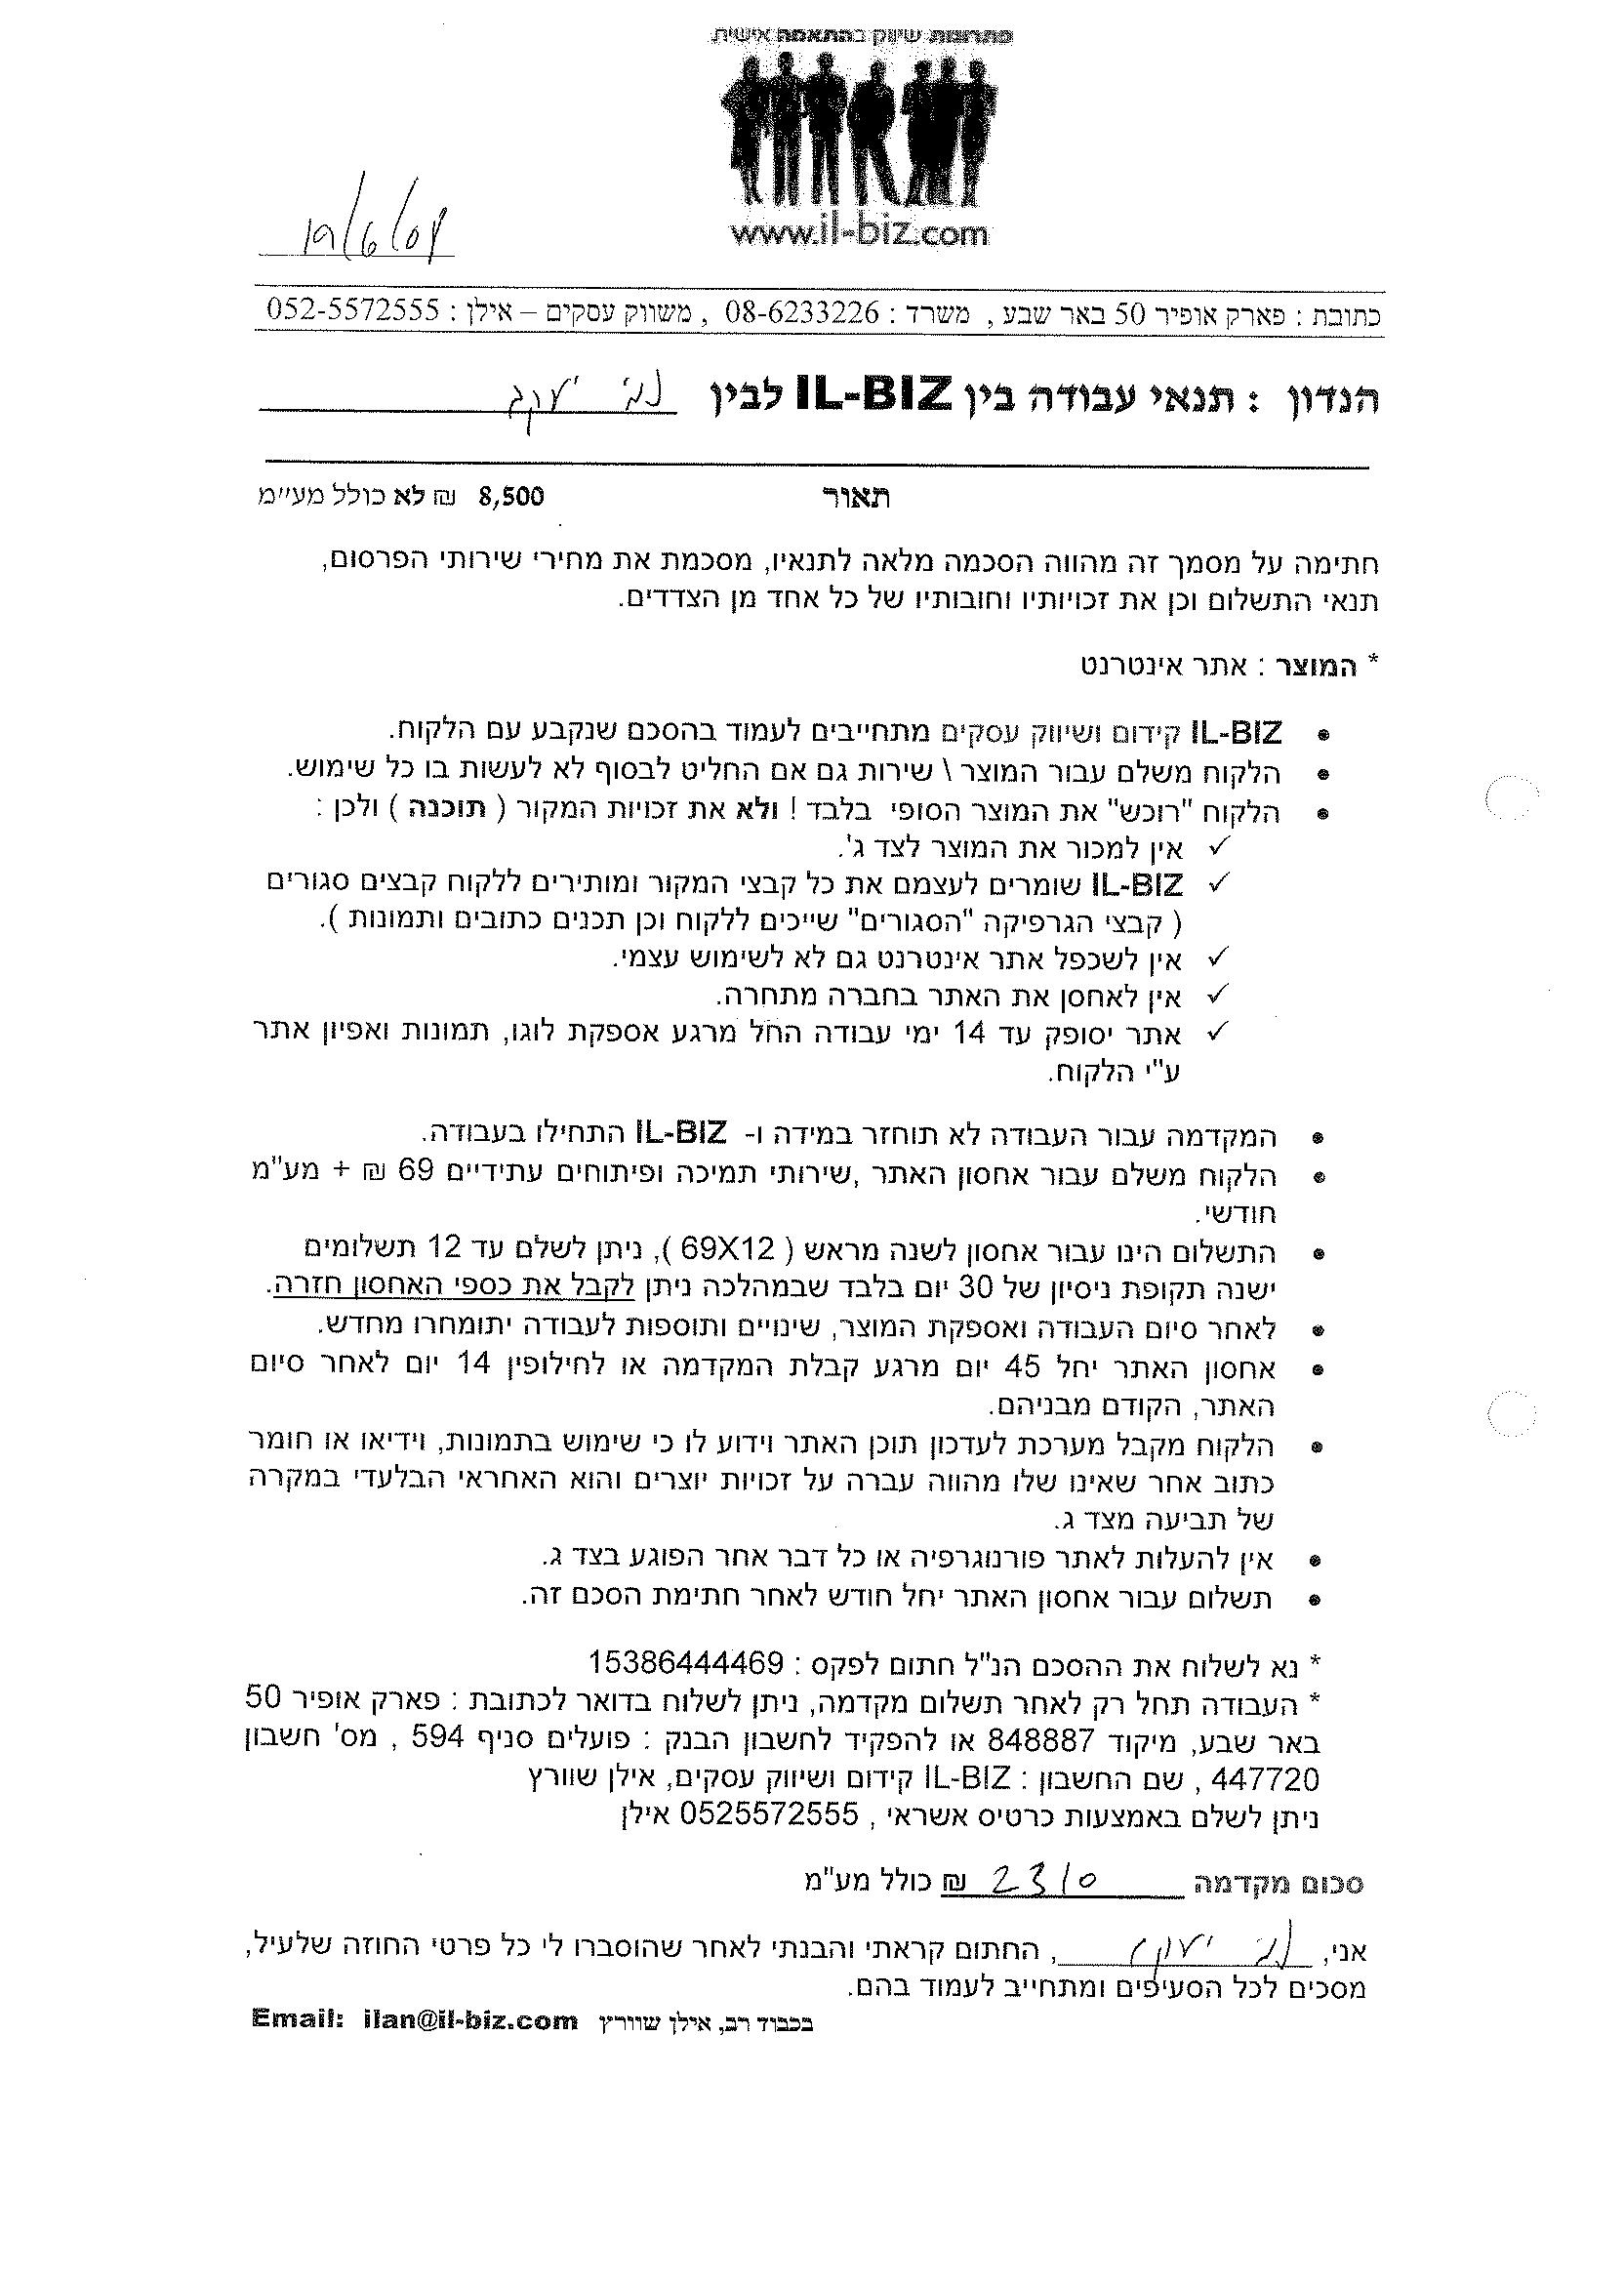 פתרונות שיווק בהתאמה אישית
www.il-biz.com
19/6/08
כתובת : פארק אופיר 50 באר שבע , משרד : 08-6233226 , משווק עסקים – אילן : 052-5572555
הנדון : תנאי עבודה בין IL-BIZ לבין
תאור 8,500 ₪ לא כולל מע״מ
חתימה על מסמך זה מהווה הסכמה מלאה לתנאיו, מסכמת את מחירי שירותי הפרסום,
תנאי התשלום וכן את זכויותיו וחובותיו של כל אחד מן הצדדים.
* המוצר : אתר אינטרנט
• IL-BIZ קידום ושיווק עסקים מתחייבים לעמוד בהסכם שנקבע עם הלקוח.
• הלקוח משלם עבור המוצר \ שירות גם אם החליט לבסוף לא לעשות בו כל שימוש.
• הלקוח "רוכש" את המוצר הסופי בלבד ! ולא את זכויות המקור ( תוכנה ) ולכן :
✓ אין למכור את המוצר לצד ג'.
✓ IL-BIZ שומרים לעצמם את כל קבצי המקור ומותירים ללקוח קבצים סגורים
( קבצי הגרפיקה "הסגורים" שייכים ללקוח וכן תכנים כתובים ותמונות ).
✓ אין לשכפל אתר אינטרנט גם לא לשימוש עצמי.
✓ אין לאחסן את האתר בחברה מתחרה.
✓ אתר יסופק עד 14 ימי עבודה החל מרגע אספקת לוגו, תמונות ואפיון אתר
ע"י הלקוח.
• המקדמה עבור העבודה לא תוחזר במידה ו- IL-BIZ התחילו בעבודה.
• הלקוח משלם עבור אחסון האתר ,שירותי תמיכה ופיתוחים עתידיים 69 ₪ + מע"מ
חודשי.
• התשלום הינו עבור אחסון לשנה מראש ( 69X12 ), ניתן לשלם עד 12 תשלומים
ישנה תקופת ניסיון של 30 יום בלבד שבמהלכה ניתן לקבל את כספי האחסון חזרה.
• לאחר סיום העבודה ואספקת המוצר, שינויים ותוספות לעבודה יתומחרו מחדש.
• אחסון האתר יחל 45 יום מרגע קבלת המקדמה או לחילופין 14 יום לאחר סיום
האתר, הקודם מבניהם.
• הלקוח מקבל מערכת לעדכון תוכן האתר וידוע לו כי שימוש בתמונות, וידיאו או חומר
כתוב אחר שאינו שלו מהווה עברה על זכויות יוצרים והוא האחראי הבלעדי במקרה
של תביעה מצד ג.
• אין להעלות לאתר פורנוגרפיה או כל דבר אחר הפוגע בצד ג.
• תשלום עבור אחסון האתר יחל חודש לאחר חתימת הסכם זה.
* נא לשלוח את ההסכם הנ"ל חתום לפקס : 15386444469
* העבודה תחל רק לאחר תשלום מקדמה, ניתן לשלוח בדואר לכתובת : פארק אופיר 50
באר שבע, מיקוד 848887 או להפקיד לחשבון הבנק : פועלים סניף 594 , מס' חשבון
447720 , שם החשבון : IL-BIZ קידום ושיווק עסקים, אילן שוורץ
ניתן לשלם באמצעות כרטיס אשראי , 0525572555 אילן
סכום מקדמה 2310 ₪ כולל מע"מ
אני, , החתום קראתי והבנתי לאחר שהוסברו לי כל פרטי החוזה שלעיל,
מסכים לכל הסעיפים ומתחייב לעמוד בהם.
בכבוד רב, אילן שוורץ Email: ilan@il-biz.com